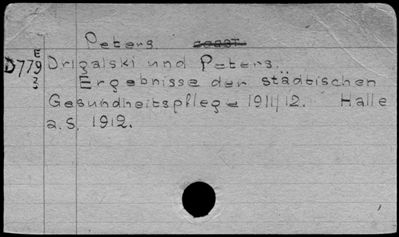 Peters.
E
D779
3
Drigalski und Peters.
Ergebnisse der städtischen
Gesundheitspflege 1911/12. Halle
a.S. 1912.